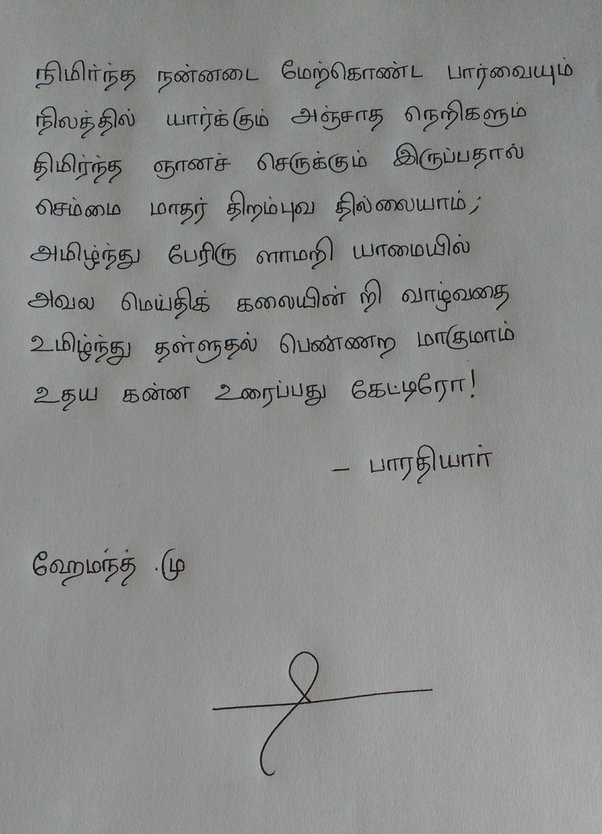 நிமிர்ந்த நன்னடை மேற்கொண்ட பார்வையும்
நிலத்தில் யார்க்கும் அஞ்சாத நெறிகளும்
திமிர்ந்த ஞானச் செருக்கும் இருப்பதால்
செம்மை மாதர் திறம்புவ தில்லையாம்;
அமிழ்ந்து பேரிரு ளாமறி யாமையில்
அவல மெய்திக் கலையின் றி வாழ்வதை
உமிழ்ந்து தள்ளுதல் பெண்ணற மாகுமாம்
உதய கன்ன உரைப்பது கேட்டிரோ!
– பாரதியார்
ஹேமந்த் .மு